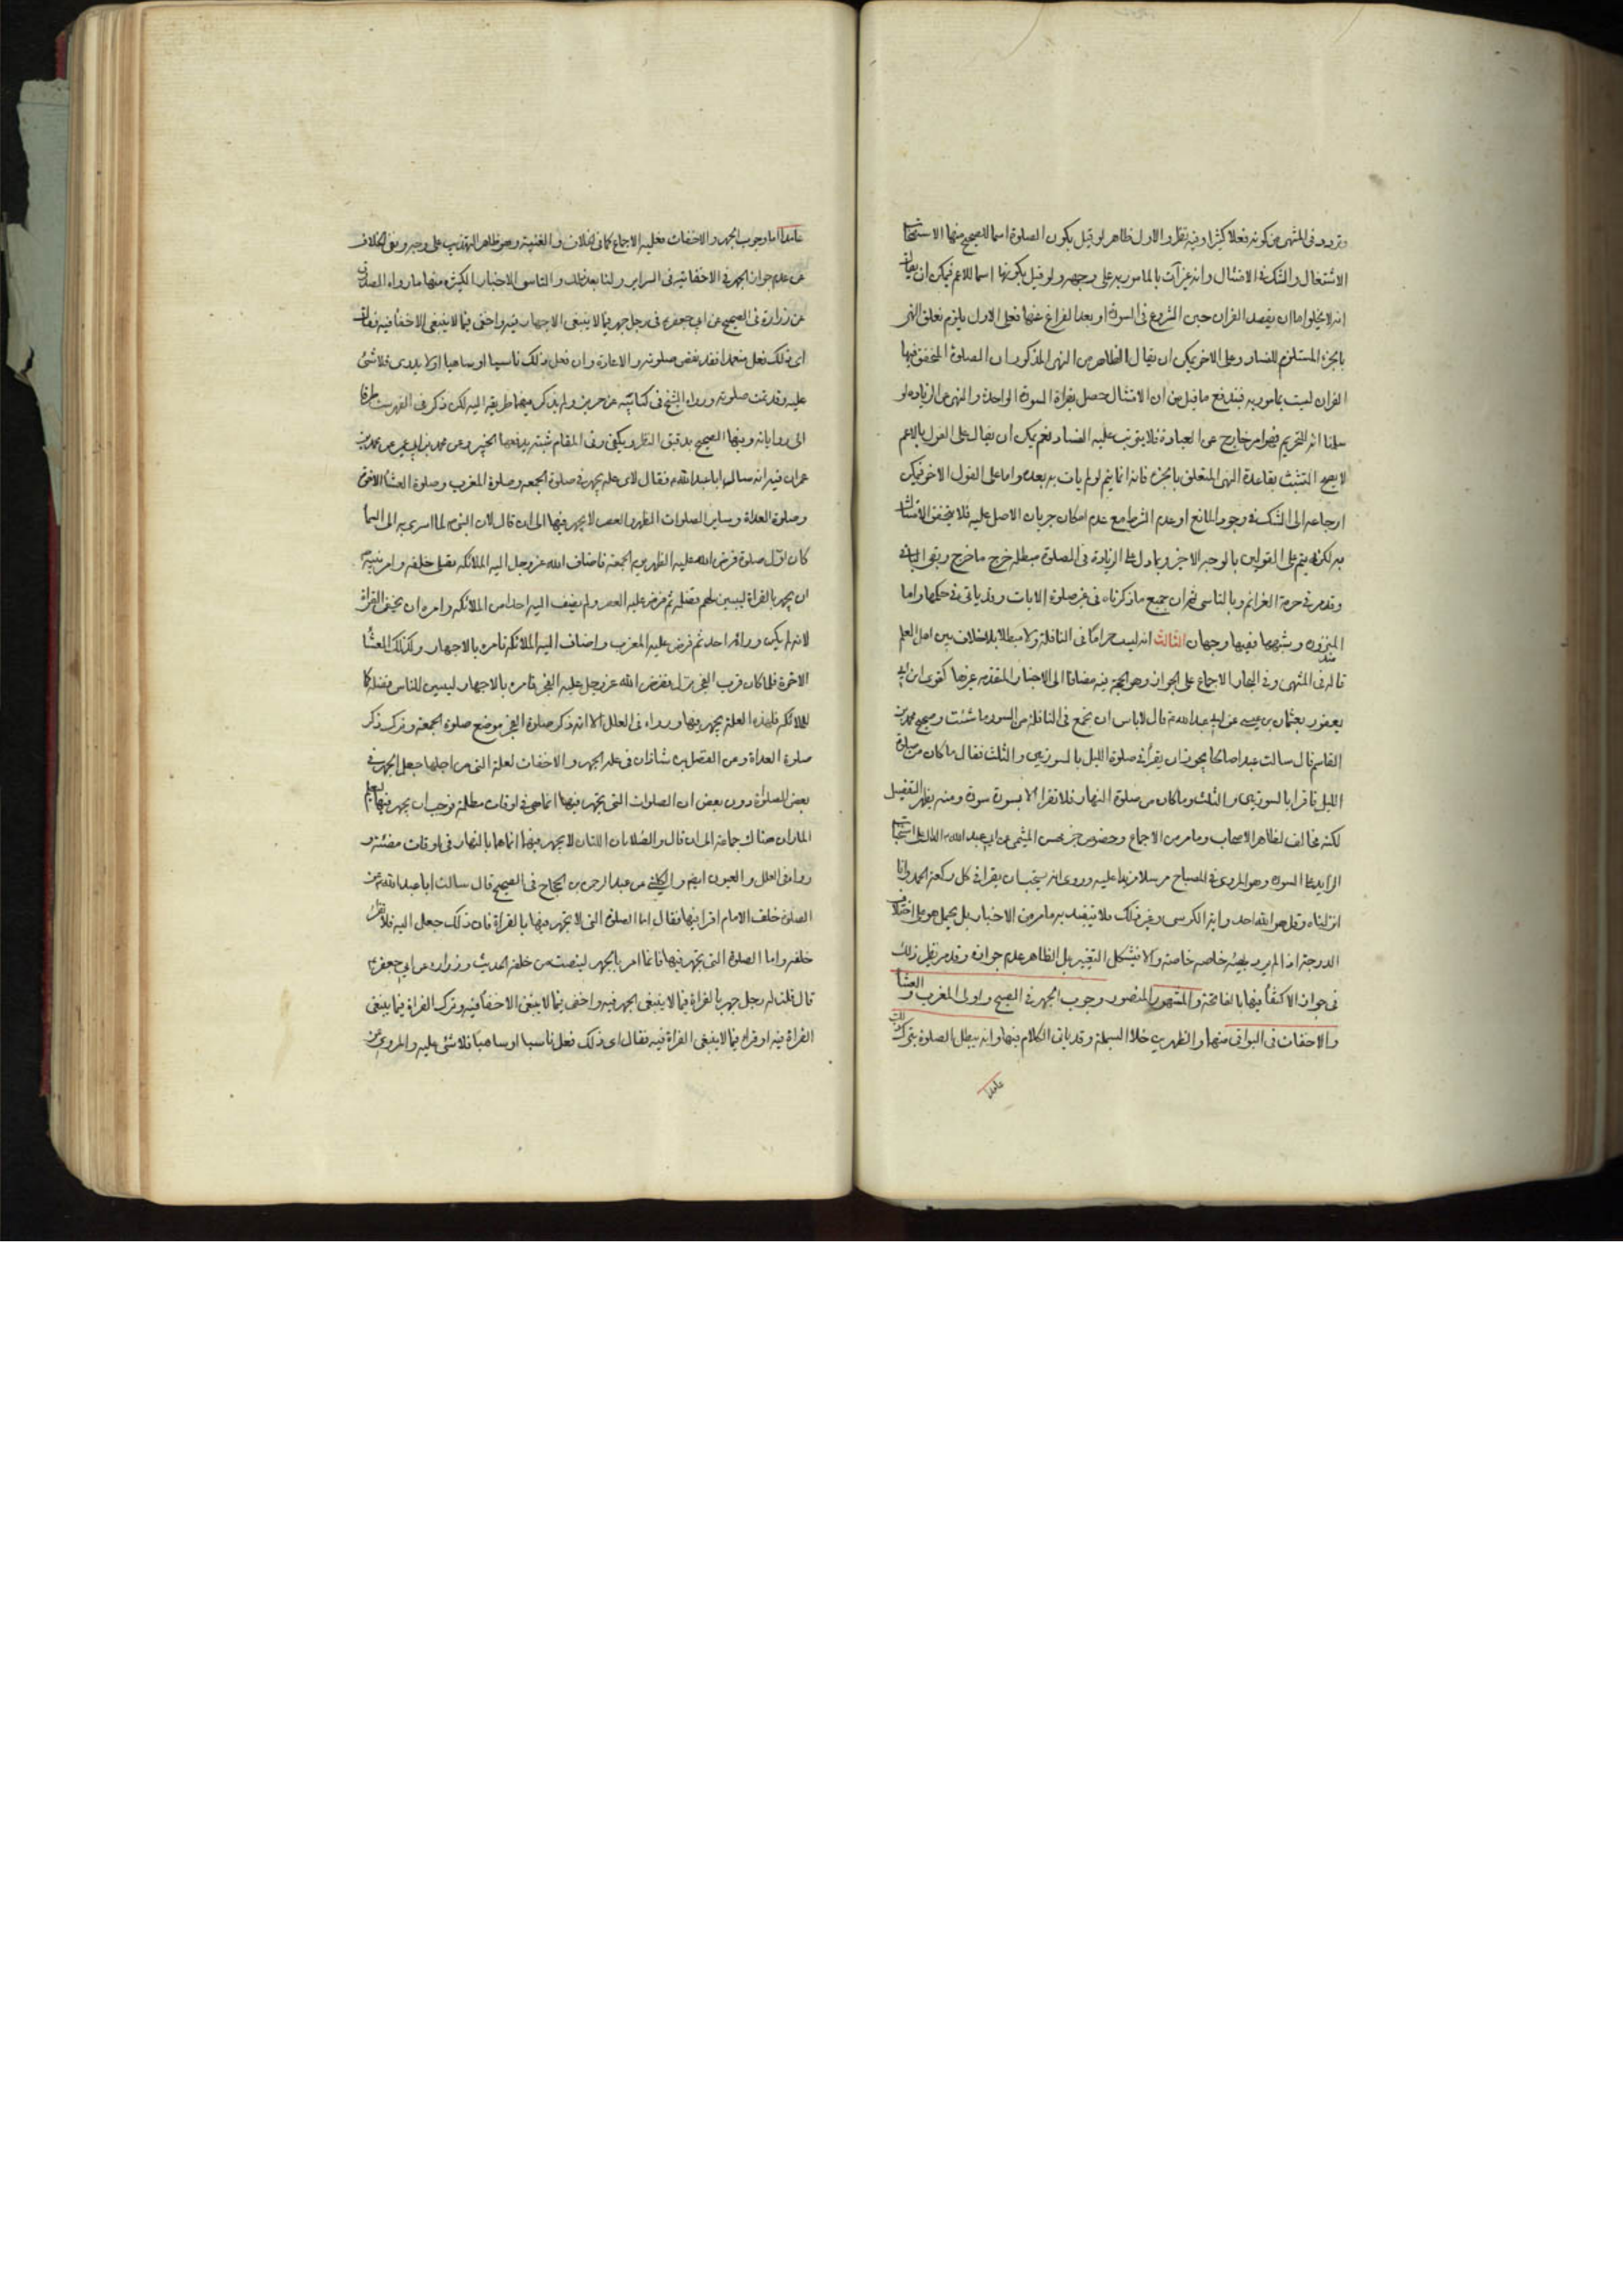 وتردد فى المنتهى من كونه فعلا كثيرا وفيه نظر والاول ظاهر لو قيل بكون الصلوة اسما للصحيح منها لاستصحاب
الاشتغال والشك فى الامتثال وانه غير آت بالمامور به على وجهه ولو قيل بكونها اسما للاعم فيمكن ان يقال
انه لا يخلوا اما ان يقصد القران حين الشروع فى السورة او بعد الفراغ عنها فعلى الاول يلزم تعلق النهى
بالجزء المستلزم للفساد وعلى الاخر يمكن ان يقال الظاهر من النهى المذكور ان الصلوة المتحقق فيها
القران ليست بمامور به فيندفع ما قيل من ان الامتثال حصل بقراة السورة الواحدة والنهى عن الزيادة لو
سلمنا انه للتحريم فهو امر خارج عن العبادة فلا يترتب عليه الفساد نعم يمكن ان يقال على القول بالاعم
لا يصح التشبث بقاعدة النهى المتعلق بالجزء فانه انما يتم لو لم يات به بعده واما على القول الاخر فيمكن
ارجاعه الى الشك فى وجود المانع او عدم الشرط مع عدم امكان جريان الاصل عليه فلا يتحقق الامتثال
به لكنه يتم على القولين بالوجه الاخر وبما دل على الزيادة فى الصلوة مبطلة خرج ما خرج وبقى الباقى
وقد مر فى حرمة العزائم وبالتاسى ثم ان جميع ما ذكرناه فى غير صلوة الايات وقد ياتى فى حكمها واما
المنذورة وشبهها ففيها وجهان الثالث انه ليست حراما فى النافلة ولا مبطلا بلا خلاف بين اهل العلم
قاله فى المنتهى وفى البحار الاجماع على الجواز وهو الحجة فيه مضافا الى الاخبار المتقدمة وغيرها كقوى ابن ابى
يعفور بعثمان بن عيسى عن ابى عبد الله ع قال لا باس ان تجمع فى النافلة من السور ما شئت وصحيح محمد بن
القاسم قال سالت عبدا صالحا يجوز ان يقرا فى صلوة الليل بالسورتين والثلث فقال ما كان من صلوة
الليل فاقرا بالسورتين والثلث وما كان من صلوة النهار فلا تقرا الا بسورة سورة ومنه يظهر التفصيل
لكنه مخالف لظاهر الاصحاب وما مر من الاجماع وخصوص خبر محسن الميثمى عن ابى عبد الله ع الدال على استحباب
الزايد على السورة وهو المروى فى المصباح مرسلا مزيدا عليه وروى انه يستحب ان يقرا فى كل ركعة الحمد وانا
انزلناه وقل هو الله احد واية الكرسى وغير ذلك فلا يتقيد به ما مر من الاخبار بل يحمل هو على اختلاف
الدرجة اذا لم يرد بهيئة خاصة خاصة والا فيشكل التغيير بل الظاهر عدم جوازه وقد مر نظير ذلك
فى جواز الاكتفا فيها بالفاتحة والمشهور المنصور وجوب الجهر فى الصبح واولى المغرب والعشا
والاخفات فى البواقى منها والظهرين خلا البسملة وقد ياتى الكلام فيها وانه يبطل الصلوة بترك ذلك
عامدا
عامدا اما وجوب الجهر والاخفات فعليه الاجماع كما فى الخلاف والغنية وهو ظاهر التهذيب على وجه ونفى الخلاف
عن عدم جواز الجهر فى الاخفاتية فى السراير ولنا بعد ذلك والتاسى الاخبار الكثيرة منها ما رواه الصدوق
عن زرارة فى الصحيح عن ابى جعفر ع فى رجل جهر فيما لا ينبغى الاجهار فيه واخفى فيما لا ينبغى الاخفا فيه فقال
اى ذلك فعل متعمدا فقد نقض صلوته والاعادة وان فعل ذلك ناسيا او ساهيا او لا يدرى فلا شئ
عليه وقد تمت صلوته ورواه الشيخ فى كتابيه عن حريز ولم يذكر فيهما طريقه اليه لكن ذكر فى الفهرست طرقا
الى رواياته وفيها الصحيح بدقيق النظر ويكفى وفى المقام شبهة يدفعها الخبير وعن محمد بن ابى عمير عن محمد بن
عمران فيه انه سال ابا عبد الله ع فقال لاى علة يجهر فى صلوة الجمعة وصلوة المغرب وصلوة العشا الاخرة
وصلوة الغداة وساير الصلوات الظهر والعصر لا يجهر فيها الى ان قال لان النبى ص لما اسرى به الى السما
كان اول صلوة فرض الله عليه الظهر يوم الجمعة فاضاف الله عز وجل اليه الملائكة يصلى خلفه وامر نبيه ص
ان يجهر بالقراة ليبين لهم فضله ثم فرض عليه العصر ولم يضف اليه احدا من الملائكة وامره ان يخفى القراة
لانه لم يكن وراءه احد ثم فرض عليه المغرب واضاف اليه الملائكة فامره بالاجهار وكذلك العشا
الاخرة فلما كان قرب الفجر نزل ففرض الله عز وجل عليه الفجر فامره بالاجهار ليبين للناس فضله كما
للملائكة فلهذه العلة يجهر فيها ورواه فى العلل الا انه ذكر صلوة الفجر موضع صلوة الجمعة وترك ذكر
صلوة الغداة وعن الفضل بن شاذان فى علة الجهر والاخفات لعلة التى من اجلها جعل الجهر فى
بعض الصلوة دون بعض ان الصلوات التى يجهر فيها انما هى فى اوقات مظلمة فوجب ان يجهر فيها ليعلم
المار ان هناك جماعة الى ان قال والصلاتان اللتان لا يجهر فيهما انما هما بالنهار فى اوقات مضيئة و
رواه فى العلل والعيون ايضا والكلينى عن عبد الرحمن بن الحجاج فى الصحيح قال سالت ابا عبد الله ع عن
الصلوة خلف الامام اقرا فيها فقال اما الصلوة التى لا تجهر فيها بالقراة فان ذلك جعل اليه فلا تقرا
خلفه واما الصلوة التى يجهر فيها فانما امر بالجهر لينصت من خلفه الحديث وزرارة عن ابى جعفر ع
قال قلت له رجل جهر بالقراة فيما لا ينبغى الجهر فيه واخفى فيما لا ينبغى الاخفا فيه وترك القراة فيما ينبغى
القراة فيه او قرا فيما لا ينبغى القراة فيه فقال اى ذلك فعل ناسيا او ساهيا فلا شئ عليه والمروى عن